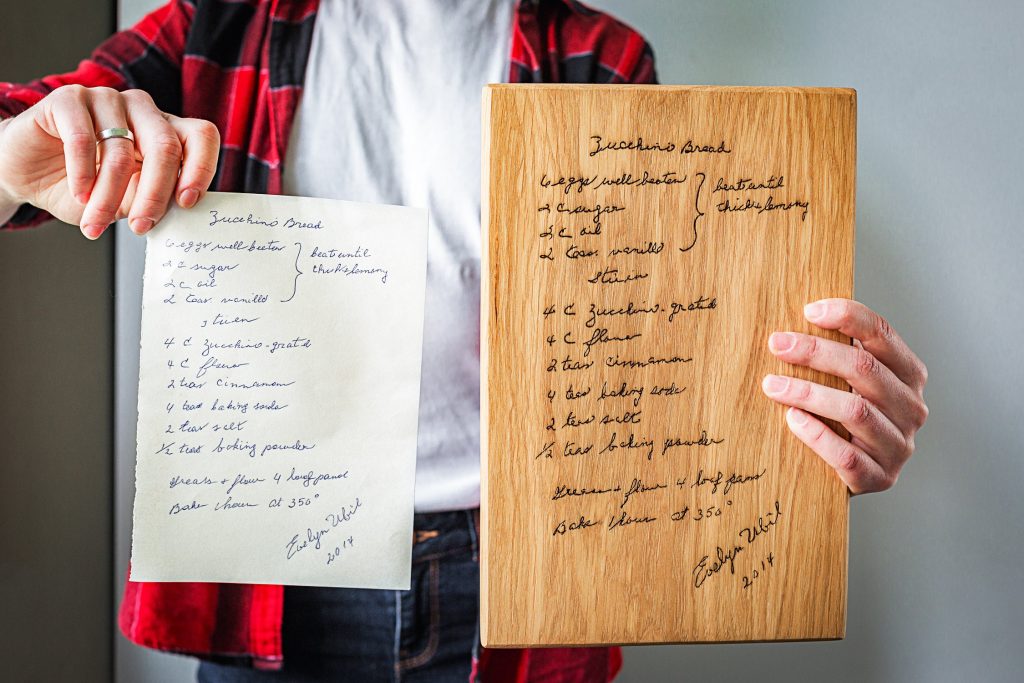 Zucchini Bread
6 eggs well beaten
2 C sugar
2 C oil
2 teas. vanilla
beat until
thick & lemony
Stir in
4 C Zucchini-grated
4 C flour
2 teas cinnamon
4 teas baking soda
2 teas salt
1/2 teas baking powder
Grease + flour 4 loaf pans
Bake 1 hour at 350°
Evelyn
2014
Zucchini Bread
6 eggs well beaten
2 C sugar
2 C oil
2 teas. vanilla
beat until
thick & lemony
Stir in
4 C Zucchini-grated
4 C flour
2 teas cinnamon
4 teas baking soda
2 teas salt
1/2 teas baking powder
Grease + flour 4 loaf pans
Bake 1 hour at 350°
Evelyn
2014